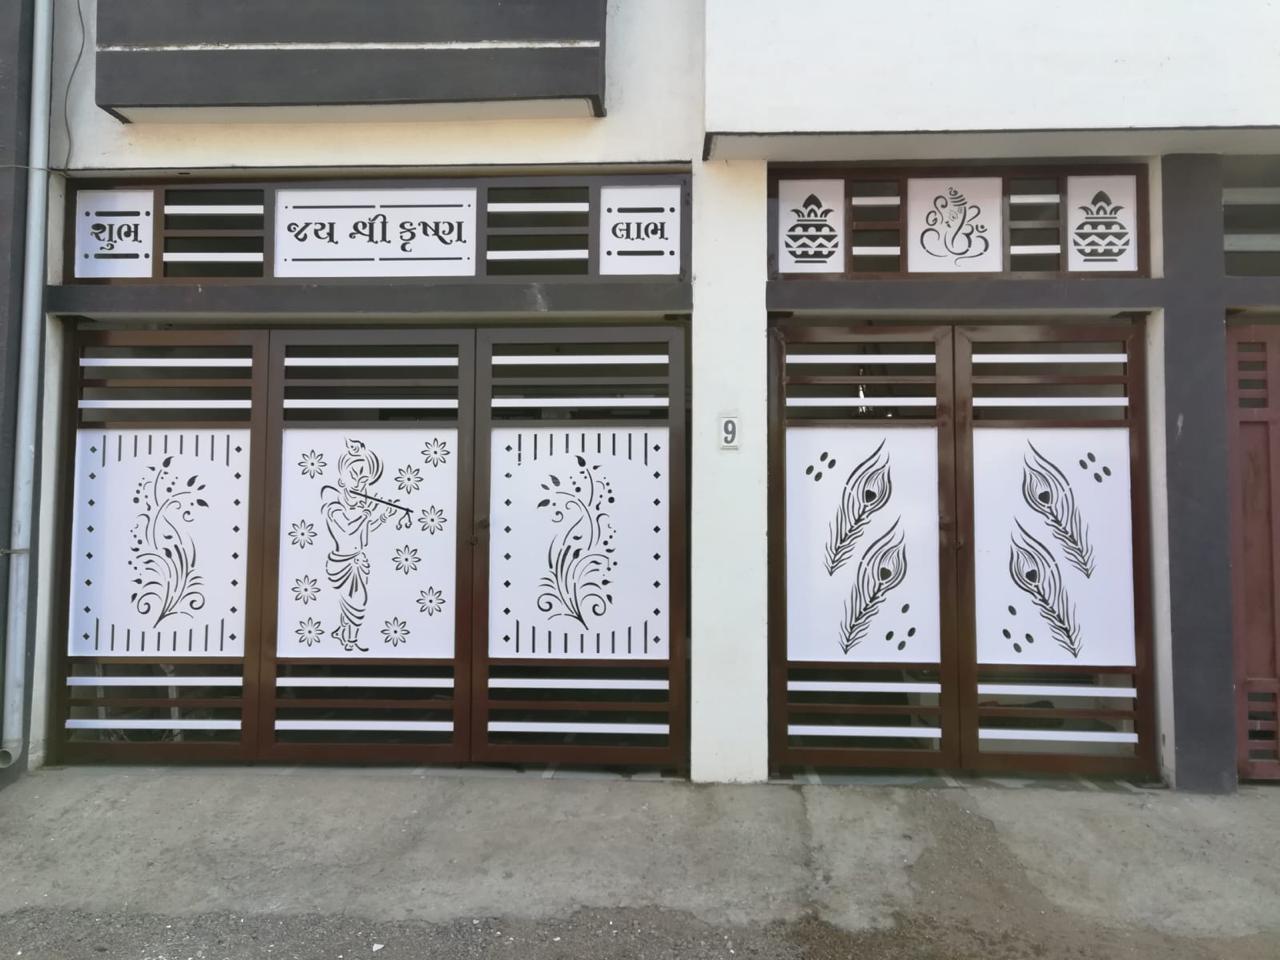 શુભ
જય શ્રી કૃષ્ણ
લાભ
ૐ
9